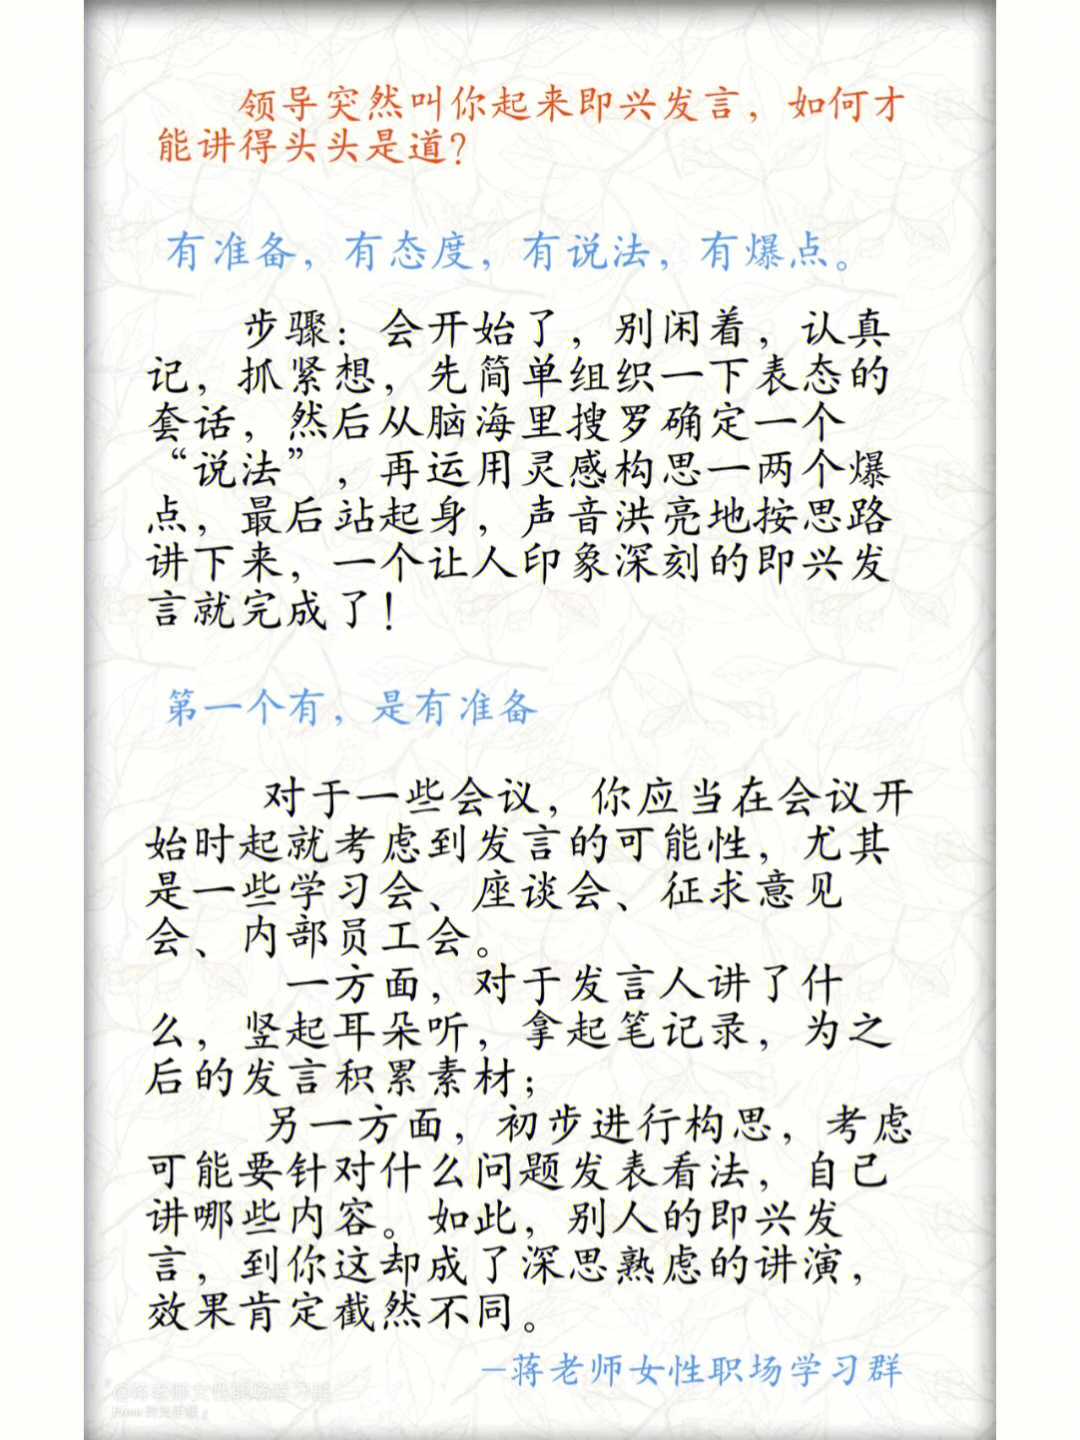 领导突然叫你起来即兴发言，如何才
能讲得头头是道？
有准备，有态度，有说法，有爆点。
步骤：会开始了，别闲着，认真
记，抓紧想，先简单组织一下表态的
套话，然后从脑海里搜罗确定一个
“说法”，再运用灵感构思一两个爆
点，最后站起身，声音洪亮地按思路
讲下来，一个让人印象深刻的即兴发
言就完成了！
第一个有，是有准备
对于一些会议，你应当在会议开
始时起就考虑到发言的可能性，尤其
是一些学习会、座谈会、征求意见
会、内部员工会。
一方面，对于发言人讲了什
么，竖起耳朵听，拿起笔记录，为之
后的发言积累素材；
另一方面，初步进行构思，考虑
可能要针对什么问题发表看法，自己
讲哪些内容。如此，别人的即兴发
言，到你这却成了深思熟虑的讲演，
效果肯定截然不同。
—蒋老师女性职场学习群
@蒋老师女性职场学习群